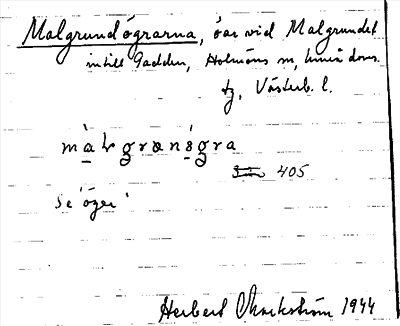 Malgrundögrarna, öar vid Malgrundet
intill Gadden, Holmöns sn, Umeå doms.
tg, Västerb. l.
màlgrænögra
405
Se 'öger'
Herbert Markström 1944